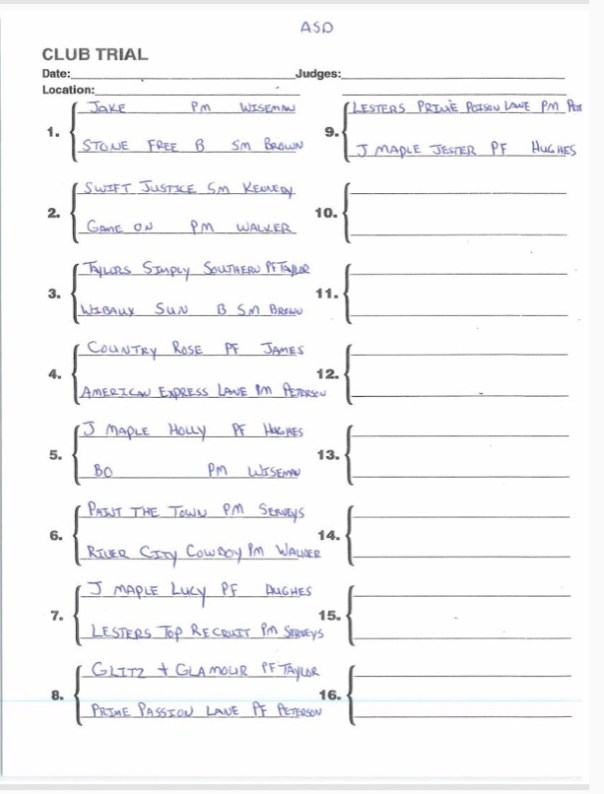 ASD
CLUB TRIAL
Date: Judges:
Location:
1. JAKE PM WISEMAN
STONE FREE B SM BROWN
2. SWIFT JUSTICE SM KENNEDY
GAME ON PM WALKER
3. TAYLORS SIMPLY SOUTHERN PF TAYLOR
WIBAUX SUN B SM BROWN
4. COUNTRY ROSE PF JAMES
AMERICAN EXPRESS LANE PM PETERSON
5. J MAPLE HOLLY PF HUGHES
BO PM WISEMAN
6. PAINT THE TOWN PM SERVEYS
RIVER CITY COWBOY PM WALKER
7. J MAPLE LUCY PF HUGHES
LESTERS TOP RECRUIT PM SERVEYS
8. GLITZ + GLAMOUR PF TAYLOR
PRIME PASSION LANE PF PETERSON
9. LESTERS PRIME POISON LANE PM
J MAPLE JESTER PF HUGHES
10.
11.
12.
13.
14.
15.
16.